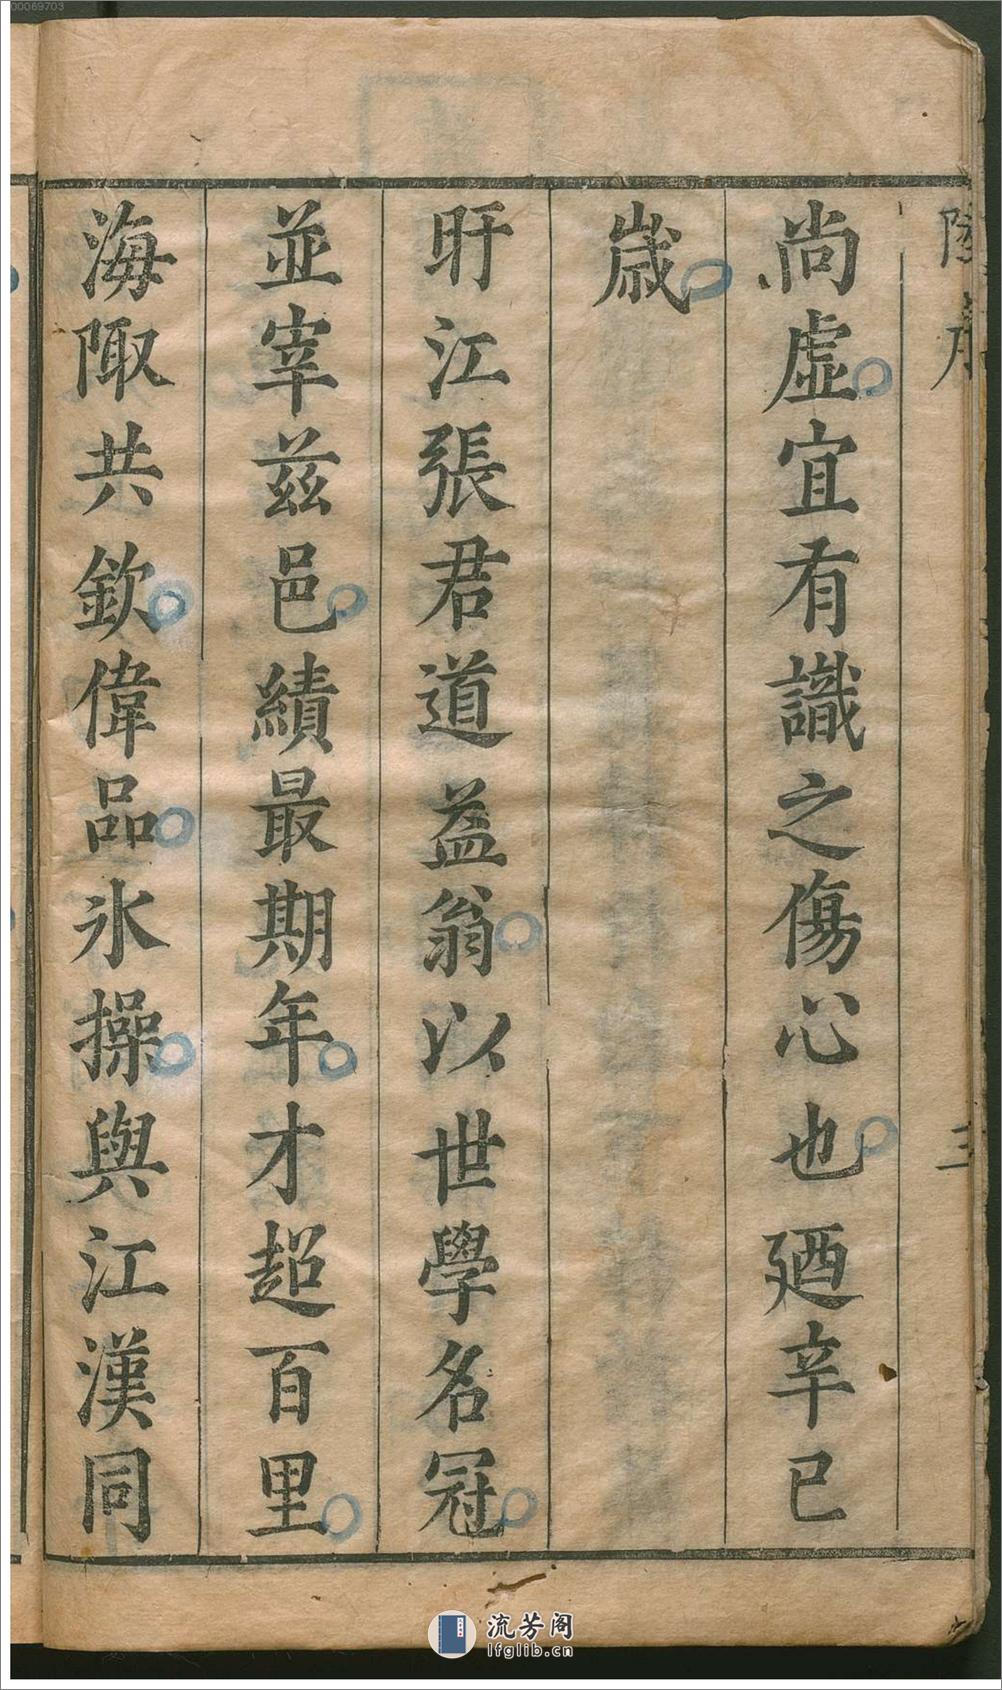 00069703
三
尚虛宜有識之傷心也廼辛巳
歲
旴江張君道益翁以世學名冠
並宰兹邑績最期年才超百里
海陬共欽偉品氷操與江漢同
流芳阁
lfglib.cn